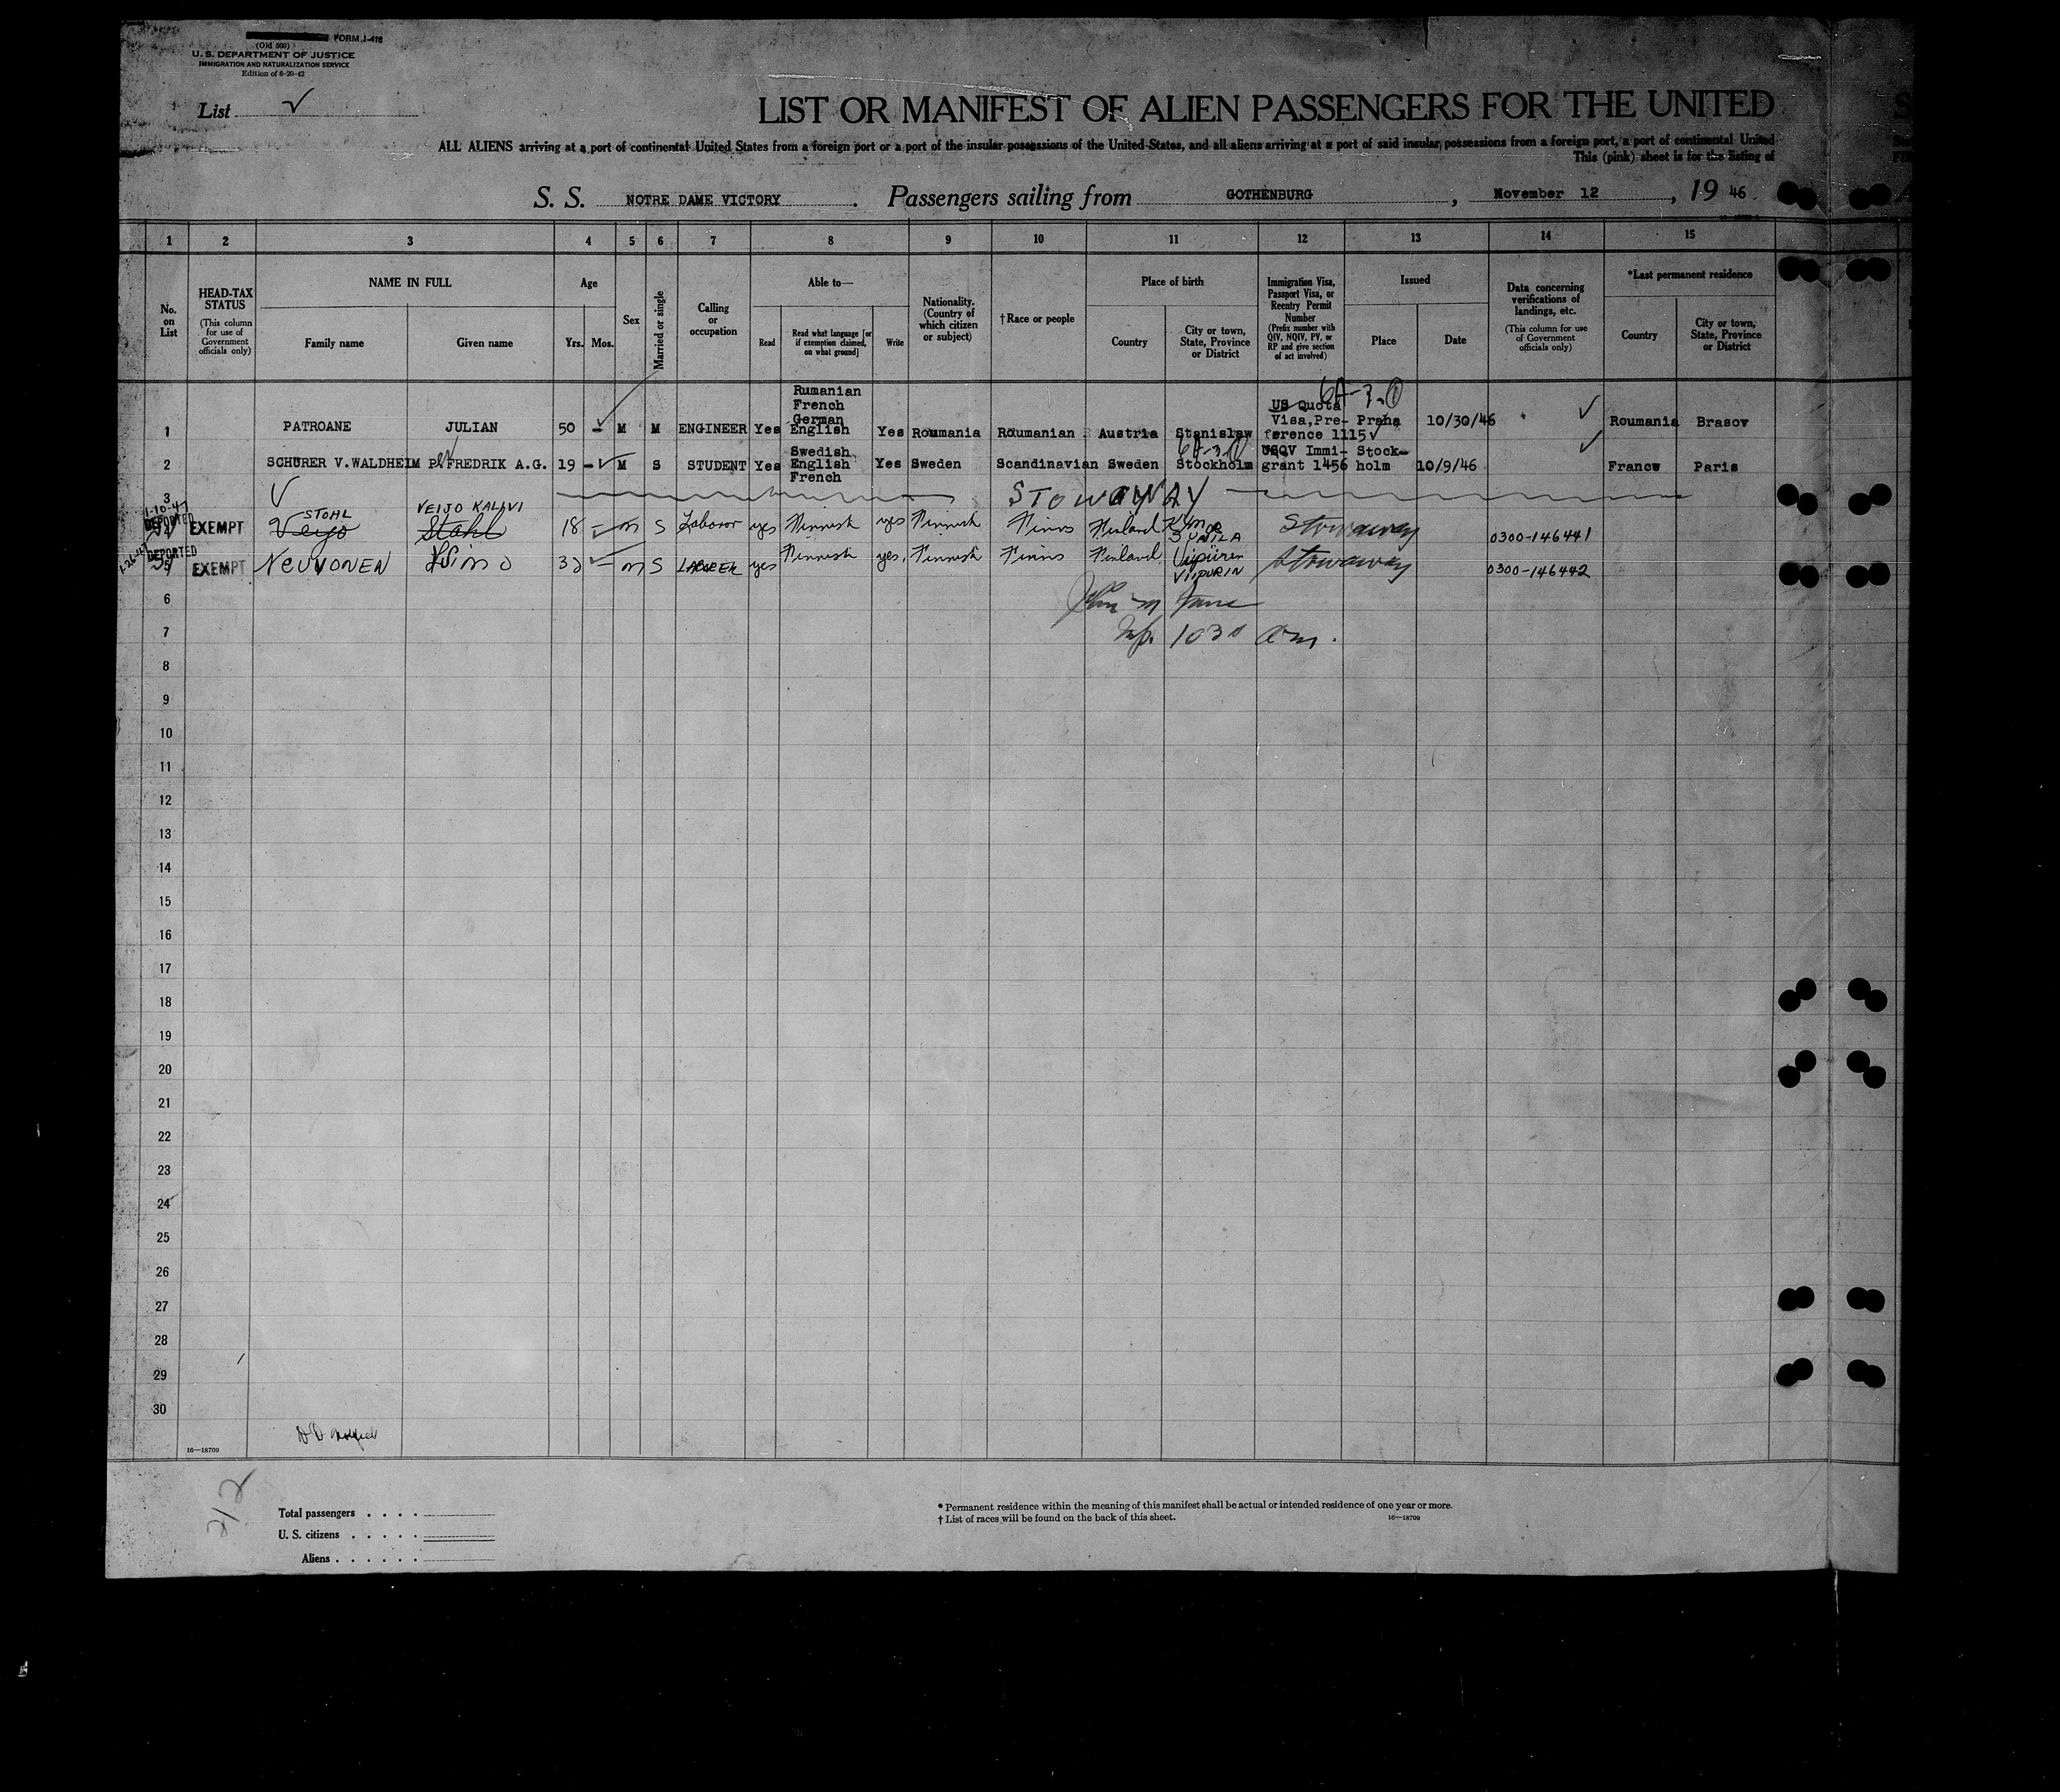 FORM I-416
(Old 500)
U. S. DEPARTMENT OF JUSTICE
IMMIGRATION AND NATURALIZATION SERVICE
Edition of 6-20-42
List
LIST OR MANIFEST OF ALIEN PASSENGERS FOR THE UNITED
ALL ALIENS arriving at a port of continental United States from a foreign port or a port of the insular possessions of the United States, and all aliens arriving at a port of said insular possessions from a foreign port, a port of continental United
This (pink) sheet is for the listing of
S. S. NOTRE DAME VICTORY. Passengers sailing from GOTHENBURG, November 12, 19 46.
1 2 3 4 5 6 7 8 9 10 11 12 13 14 15
No. on List
HEAD-TAX STATUS
(This column for use of Government officials only)
NAME IN FULL
Family name
Given name
Age
Yrs. Mos.
Sex
Married or single
Calling or occupation
Able to—
Read
Read what language [or if exemption claimed, on what ground]
Write
Nationality. (Country of which citizen or subject)
†Race or people
Place of birth
Country
City or town, State, Province or District
Immigration Visa, Passport Visa, or Reentry Permit Number
(Prefix number with QIV, NQIV, PV, or RP and give section of act involved)
Issued
Place
Date
Data concerning verifications of landings, etc.
(This column for use of Government officials only)
*Last permanent residence
Country
City or town, State, Province or District
1 PATROANE JULIAN 50 - M M ENGINEER Yes Rumanian French German English Yes Roumania Roumanian Austria Stanislaw US Quota Visa,Pre- ference 1115 Praha 10/30/46 Roumania Brasov
2 SCHURER V.WALDHEIM FREDRIK A.G. 19 - M S STUDENT Yes Swedish English French Yes Sweden Scandinavian Sweden Stockholm Immi- grant 1456 Stock- holm 10/9/46 France Paris
3 STOWAWAY
1-10-47 DEPORTED EXEMPT STOHL VEIJO KALAVI
Veijo Stahl 18 - m S Laborer yes Finnish yes Finnish Finns Finland Stowaway 0300-146441
DEPORTED EXEMPT NEUVONEN 32 - m S LABORER yes Finnish yes, Finnish Finns Finland VIIPURIN Stowaway 0300-146442
6
7 Insp. 1030 am.
8
9
10
11
12
13
14
15
16
17
18
19
20
21
22
23
24
25
26
27
28
29
30
16—18709
Total passengers . . . .
U. S. citizens . . . . .
Aliens . . . . . .
* Permanent residence within the meaning of this manifest shall be actual or intended residence of one year or more.
† List of races will be found on the back of this sheet.
16—18709